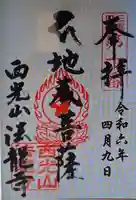 奉拝
令和六年
四月九日
六地蔵菩薩
西光山法龍寺
西光山